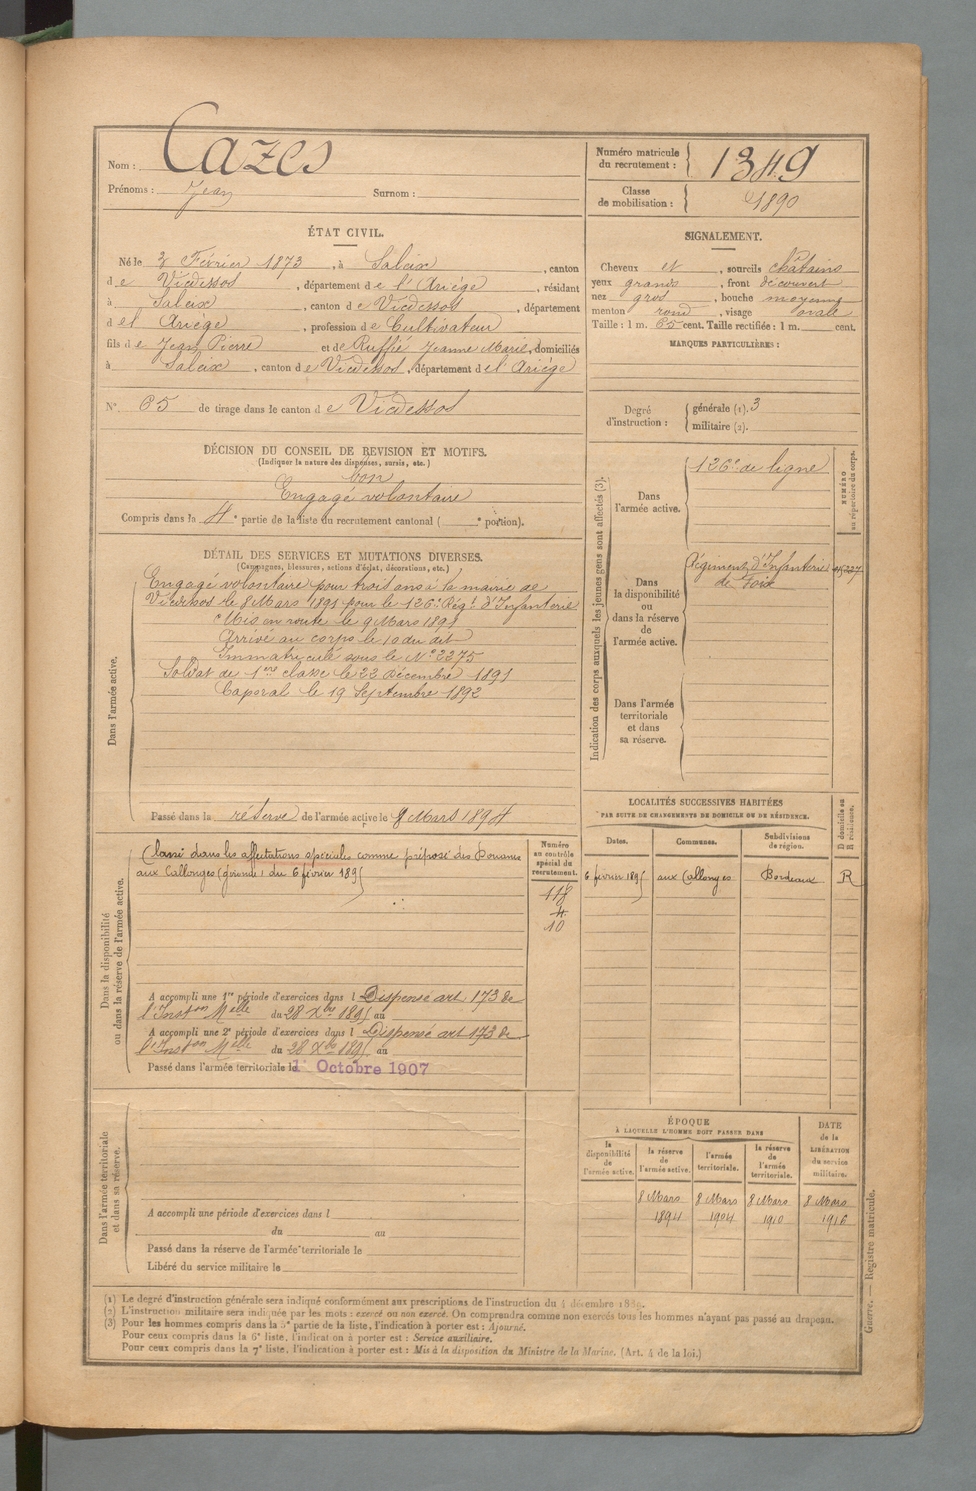 Nom : Cazes
Prénoms : Jean Surnom :
Numéro matricule du recrutement : 1349
Classe de mobilisation : 1890
ÉTAT CIVIL.
Né le 3 Février 1873, à Saleix, canton
de Vicdessos, département de l'Ariège, résidant
à Saleix, canton de Vicdessos, département
d el Ariège, profession de Cultivateur
fils de Jean Pierre et de Ruffié Jeanne Marie, domiciliés
à Saleix, canton de Vicdessos, département d el Ariège
N° 65 de tirage dans le canton de Vicdessos
SIGNALEMENT.
Cheveux et, sourcils châtains
yeux grands, front découvert
nez gros, bouche moyenne
menton rond, visage ovale
Taille : 1 m. 65 cent. Taille rectifiée : 1 m. cent.
MARQUES PARTICULIÈRES :
Degré d'instruction : générale (1). 3
militaire (2).
DÉCISION DU CONSEIL DE REVISION ET MOTIFS.
(Indiquer la nature des dispenses, sursis, etc.)
bon
Engagé volontaire
Compris dans la 4e partie de la liste du recrutement cantonal ( e portion).
DÉTAIL DES SERVICES ET MUTATIONS DIVERSES.
(Campagnes, blessures, actions d'éclat, décorations, etc.)
Dans l'armée active.
Engagé volontaire pour trois ans à la mairie de
Vicdessos le 8 Mars 1891 pour le 126e Régt d'Infanterie
Mis en route le 9 Mars 1891
Arrivé au corps le 10 du dit
Immatriculé sous le N° 2275
Soldat de 1ere classe le 22 Décembre 1891
Caporal le 19 Septembre 1892
Passé dans la réserve de l'armée active le 8 Mars 1894
Indication des corps auxquels les jeunes gens sont affectés (3).
NUMÉRO au répertoire du corps.
Dans l'armée active.
126e de ligne
Dans la disponibilité ou dans la réserve de l'armée active.
Régiment d'Infanterie
de Foix
Dans l'armée territoriale et dans sa réserve.
Dans la disponibilité ou dans la réserve de l'armée active.
Classé dans les affectations spéciales comme préposé des Douanes
aux Callonges (gironde) du 6 février 1895
Numéro au contrôle spécial du recrutement.
118
4
10
A accompli une 1re période d'exercices dans l Dispensé art 173 de
l'Inston Melle du 28 Xbre 1895 au
A accompli une 2e période d'exercices dans l Dispensé art 173 de
l'Inston Melle du 28 Xbre 1895 au
Passé dans l'armée territoriale le 1er Octobre 1907
LOCALITÉS SUCCESSIVES HABITÉES
PAR SUITE DE CHANGEMENTS DE DOMICILE OU DE RÉSIDENCE.
Dates. Communes. Subdivisions de région. D domicile ou R résidence.
6 février 1895 aux Callonges Bordeaux R
Dans l'armée territoriale et dans sa réserve.
A accompli une période d'exercices dans l
du au
Passé dans la réserve de l'armée territoriale le
Libéré du service militaire le
ÉPOQUE
À LAQUELLE L'HOMME DOIT PASSER DANS
la disponibilité de l'armée active. la réserve de l'armée active. l'armée territoriale. la réserve de l'armée territoriale.
DATE de la LIBÉRATION du service militaire.
8 Mars 8 Mars 8 Mars 8 Mars
1894 1904 1910 1916
(1) Le degré d'instruction générale sera indiqué conformément aux prescriptions de l'instruction du 4 décembre 1889.
(2) L'instruction militaire sera indiquée par les mots : exercé ou non exercé. On comprendra comme non exercés tous les hommes n'ayant pas passé au drapeau.
(3) Pour les hommes compris dans la 5e partie de la liste, l'indication à porter est : Ajourné.
Pour ceux compris dans la 6e liste, l'indication à porter est : Service auxiliaire.
Pour ceux compris dans la 7e liste, l'indication à porter est : Mis à la disposition du Ministre de la Marine. (Art. 4 de la loi.)
Guerre. — Registre matricule.